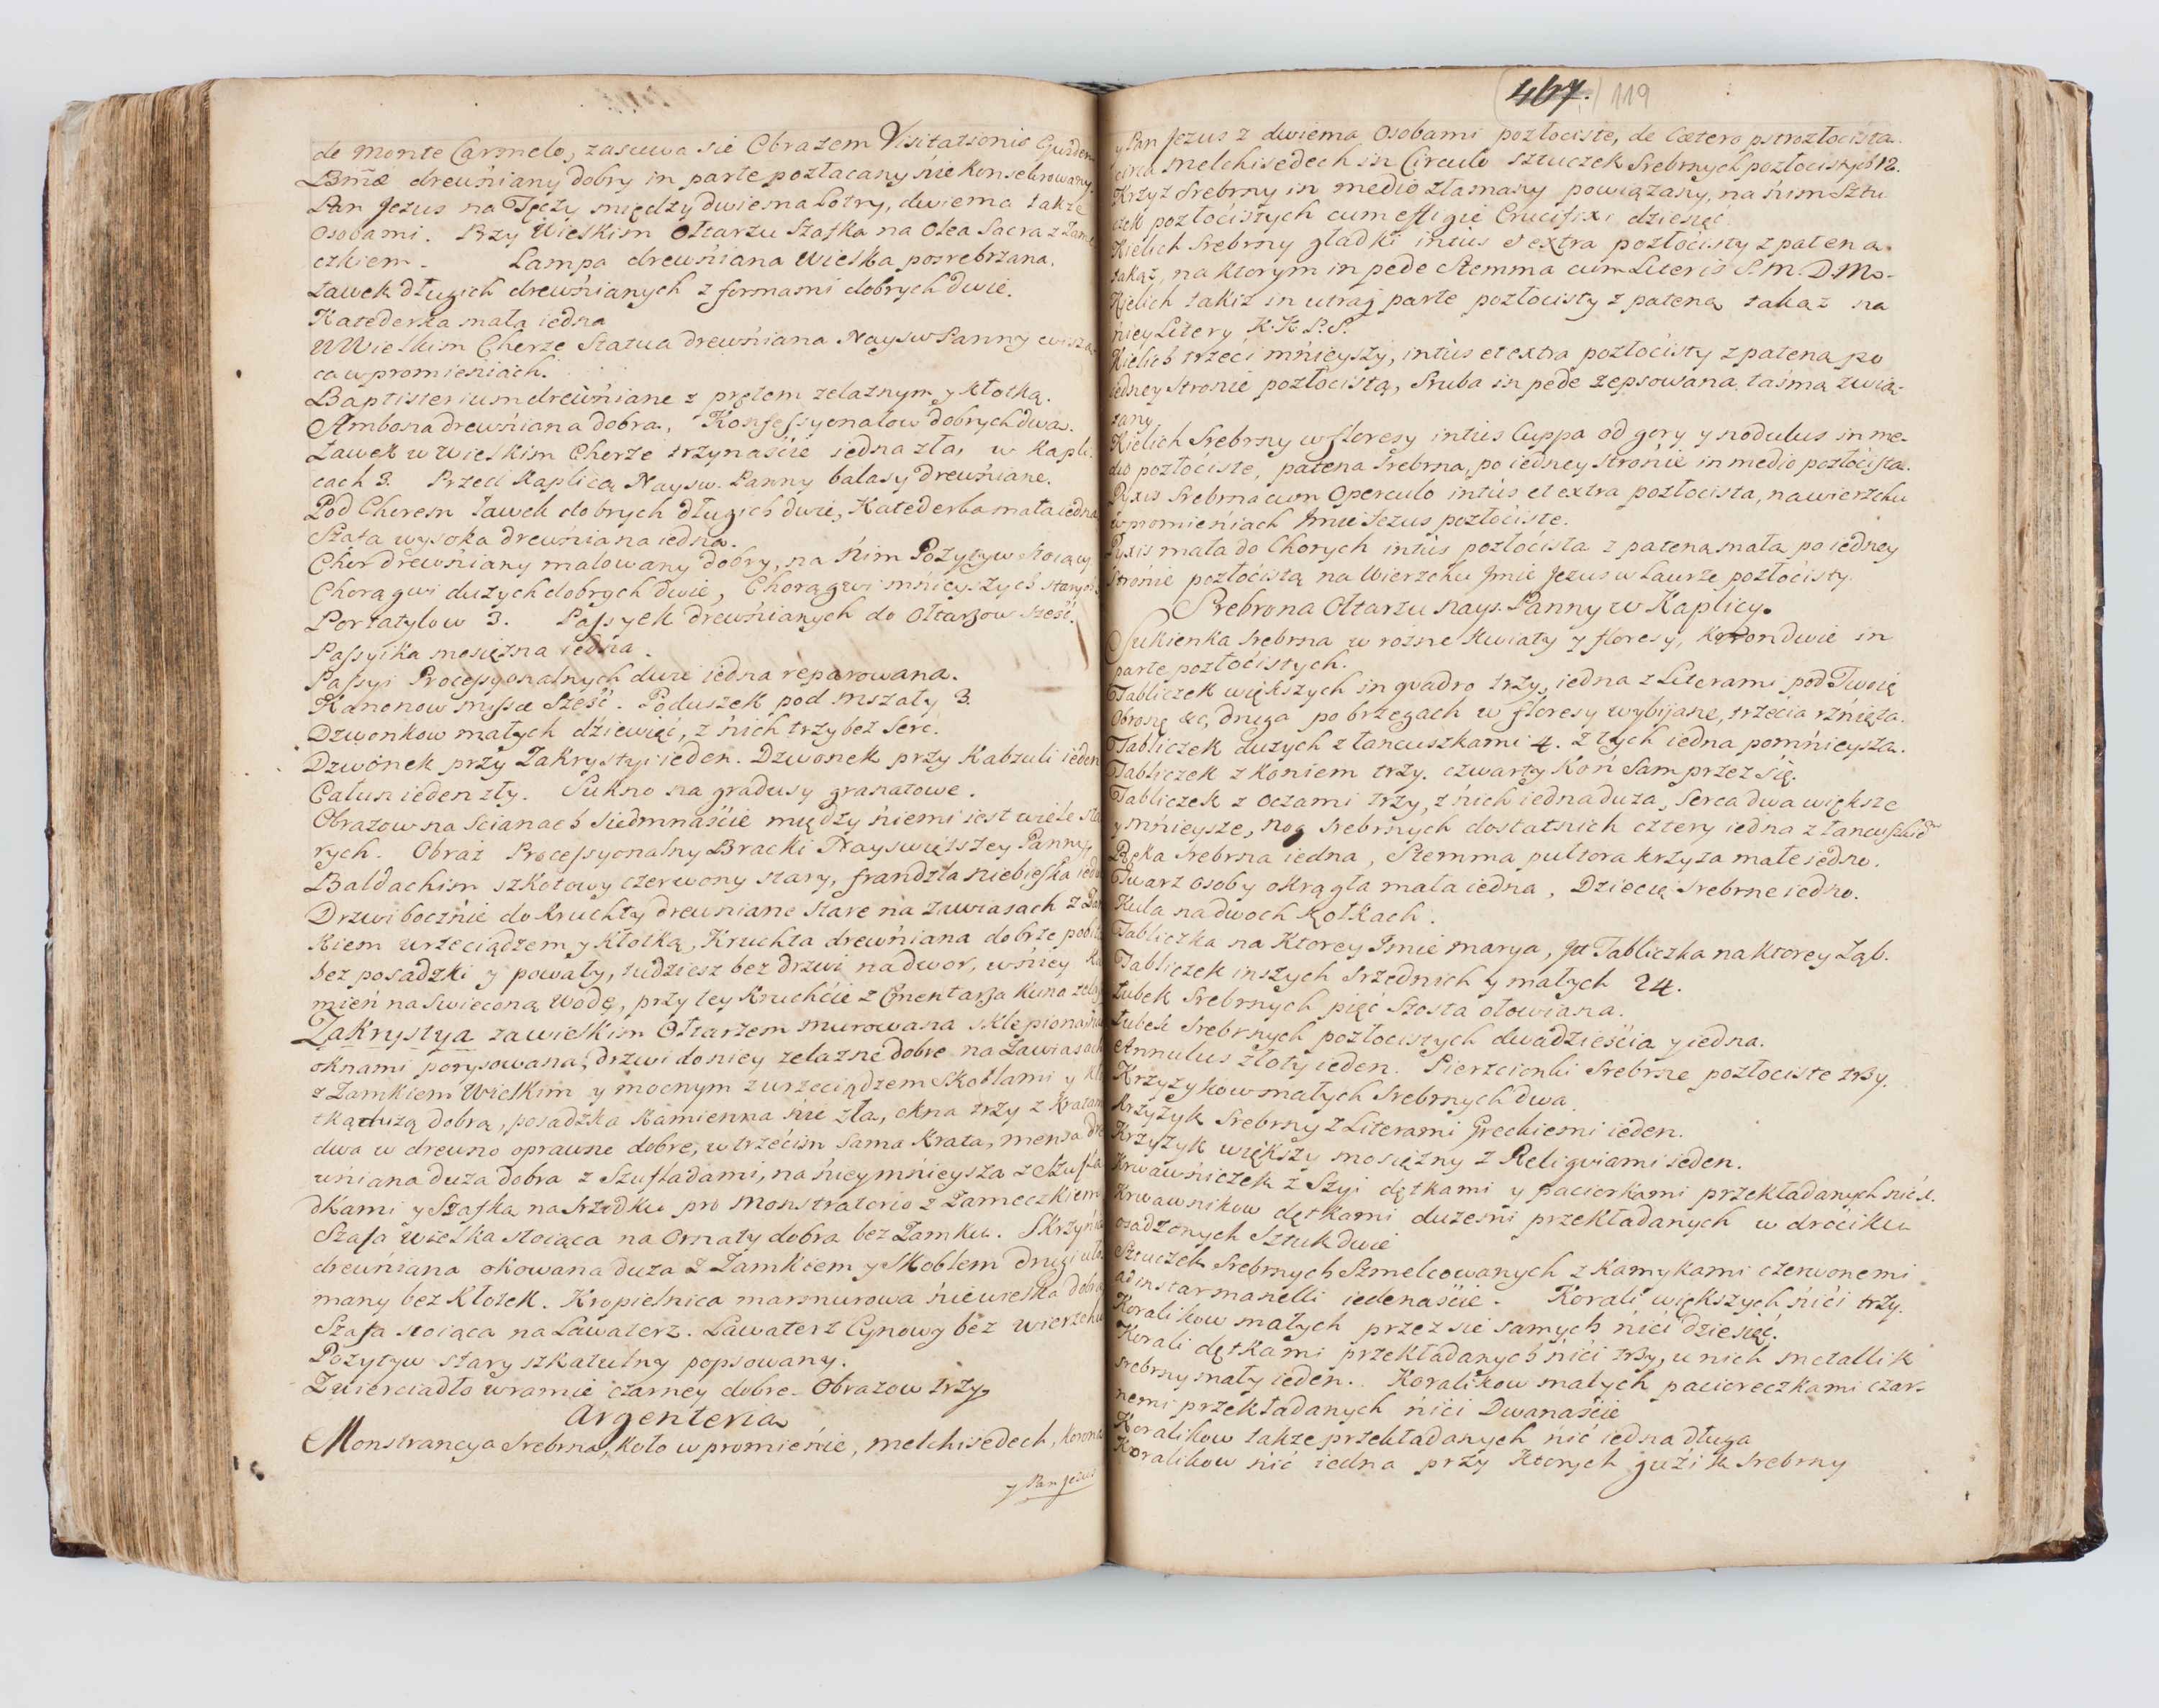 de Monte Carmelo, zasuwa sie Obrazem Visitationis
Bmæ drewniany dobry in parte pozłacany nie konsekrowany.
Pan Jezus na Tęczy między dwiema Łotry, dwiema także
Osobami. Przy Wielkim Ołtarzu Szafka na Olea Sacra z Zame
czkiem. Lampa drewniana Wielka posrebrzana.
Ławek długich drewnianych z formami dobrych dwie.
Katederka mała iedna
W Wielkim Chorze Statua drewniana Nayśw Panny wisza
ca w promieniach.
Baptisterium drewniane z prętem zelaznym y kłotką.
Ambona drewniana dobra, Konfessyonałow dobrych dwa.
Ławek w Wielkim Chorze trzynaście iedna zła, w Kapli
cach 3. Przed Kaplicą Naysw. Panny balasy drewniane.
Pod Chorem ławek dobrych długich dwie, Katederka mała iedna
Szafa wysoka drewniana iedna.
Chor drewniany malowany dobry, na nim Pozytyw stoiący
Chorągwi dużych dobrych dwie, Chorągwi mnieyszych starych
Portatylow 3. Passyek drewnianych do Ołtarzow sześć.
Passyika mosiężna iedna.
Passyi Processyonalnych dwie iedna reparowana.
Kanonow missæ Sześć. Poduszek pod mszały 3.
Dzwonkow małych dziewięć, z nich trzy bez Serc.
Dzwonek przy Zakrystyi ieden. Dzwonek przy Kabzuli ieden
Całun ieden zły. Sukno na gradusy granatowe.
Obrazow na scianach Siedmnaście między niemi iest wiele sta
rych. Obraz Processyonalny Bracki Nayświętszey Panny,
Baldachim szkotowy czerwony stary, frandzla niebieska ied
Drzwi bocznie do Kruchty drewniane stare na zawiasach z Zam
kiem wrzeciądzem y Kłotką, Kruchta drewniana dobrze pobita
bez posadzki y powały, tudziesz bez drzwi na dwor, w niey ka
mień na Swieconą Wodę, przy tey Kruchcie z Cmentarza Kuna zelaz
Zakrystya za wielkim Ołtarzem murowana sklepiona
oknami porysowana, drzwi do niey zelazne dobre na Zawiasach
z Zamkiem Wielkim y mocnym z wrzeciądzem Skoblami y Kło
tką dużą dobrą, posadzka kamienna nie zła, okna trzy z Kratami
dwa w drewno oprawne dobre, w trzecim sama Krata, mensa dre
wniana duża dobra z Szufladami, na niey mnieysza z Szufla
dkami y Szafka na Srzodku pro Monstratorio z Zameczkiem
Szafa Wielka stoiąca na Ornaty dobra bez Zamku. Skrzynia
drewniana okowana duża z Zamkiem y Skoblem drugi uło
many bez Kłotek. Kropielnica marmurowa niewielka dobra
Szafa stoiąca na Lawaterz. Lawaterz Cynowy bez wierzchu
Pozytyw stary szkatulny popsowany.
Zwierciadło w ramie czarney dobre. Obrazow trzy
Argenteria
Monstrancya Srebrna, koło w promienie, melchisedech, korona
y Pan Jezus
467. 119
y Pan Jezus z dwiema Osobami pozłociste, de Cætero pstrozłocista.
circa Melchisedech in Circulo sztuczek Srebrnych pozłocistych 12.
Krzyż Srebrny in medio złamany powiązany, na nim Sztu
czek pozłocistych cum effigie Crucifixi dziesięć
Kielich Srebrny gładki intùs et extra pozłocisty z patena
takąż, na ktorym in pede Stemma cum Literis S. M. D. Mo.
Kielich takiż in utraq parte pozłocisty z pateną takąż na
niey Litery K. K. P. S.
Kielich trzeci mnieyszy, intùs et extra pozłocisty z pateną po
iedney Stronie pozłocistą, Sruba in pede zepsowana, taśmą zwią-
zany
Kielich Srebrny w floresy intùs Cuppa od gory y nodulus in me-
dio pozłociste, patena srebrna, po iedney stronie in medio pozłocista.
Pyxis Srebrna cum Operculo intùs et extra pozłocista, na wierzchu
w promieniach Jmie Jezus pozłociste.
Pyxis mała do Chorych intùs pozłocista z pateną małą po iedney
stronie pozłocistą na Wierzchu Jmie Jezus w Laurze pozłocisty.
Srebro na Ołtarzu Nays. Panny w Kaplicy.
Sukienka Srebrna w rożne kwiaty y floresy, Koron dwie in
parte pozłocistych.
Tabliczek większych in quadro trzy, iedna z Literami pod Twoię
Obronę &c, druga po brzegach w floresy wybijane, trzecia rznięta.
Tabliczek dużych z łancuszkami 4. z tych iedna pomnieysza.
Tabliczek z Koniem trzy. czwarty Koń Sam przez Się.
Tabliczek z Oczami trzy, z nich iedna duża, Serca dwa większe
y mnieysze, Nog srebrnych dostatnich cztery iedna z łancuszkiem
Ręka Srebrna iedna, Stemma pułtora krzyża małe iedno.
Twarz Osoby okrągła mała iedna, Dziecię Srebrne iedno.
Kula na dwoch kołkach.
Tabliczka na Ktorey Jmie Marya, Jtt Tabliczka na ktorey Ząb.
Tabliczek inszych srzednich y małych 24.
Łubek Srebrnych pięć Szosta ołowiana.
Łubek Srebrnych pozłocistych dwadzieścia y iedna.
Annulus złoty ieden. Pierzcionki Srebrne pozłociste trzy.
Krzyzykow małych Srebrnych dwa
Krzyżyk Srebrny z Literami Greckiemi ieden.
Krzyżyk większy mosiężny z Reliqwiami ieden.
Krwawniczek z Szyi dętkami y paciorkami przekładanych nić 1.
Krwawnikow dętkami dużemi przekładanych w drociku
osadzonych Sztuk dwie
Sztuczek Srebrnych Szmelcowanych z Kamykami czerwonemi
ad instar manelli iedenaście. Korali większych nici trzy.
Koralikow małych przez się samych nici dziesięć.
Korali dętkami przekładanych nici trzy, u nich metallik
srebrny mały ieden. Koralikow małych pacioreczkami czar-
nemi przekładanych nici Dwanaście
Koralikow także przekładanych nić iedna długa
Koralikow nić iedna przy Ktorych guzik srebrny